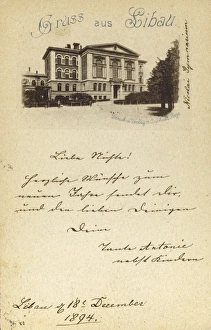 Gruss aus Libau.
Nicolai Gymnasium
Liebe Nichte!
Herzliche Wünsche zum
neuen Jahre sendet dir
und den lieben Deinigen
Dein
Tante Antonie
nebst Kindern
Libau d 18t December
1894.